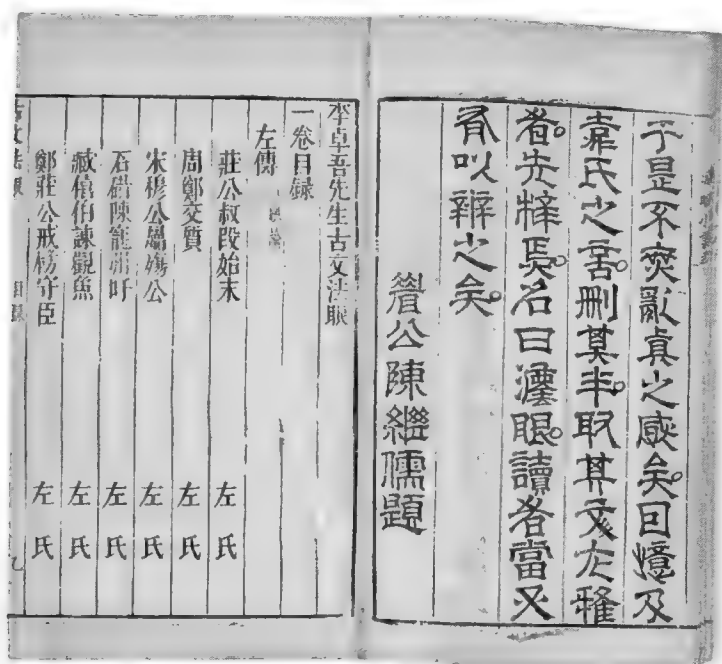 于是不免亂真之感矣。回憶及
弇氏之言。刪其半。取其文尤雅
者。先梓焉。名曰灋眼。讀者當又
有以辨之矣。
眉公陳繼儒題
李卓吾先生古文法眼
一卷目錄
左傳
莊公叔段始末 左氏
周鄭交質 左氏
宋穆公屬殤公 左氏
石碏陳寵州吁 左氏
臧僖伯諫觀魚 左氏
鄭莊公戒飭守臣 左氏
目錄